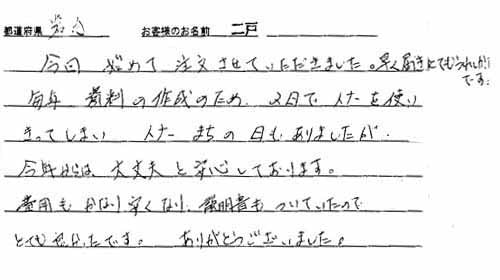 都道府県 お客様のお名前 二戸
今回 始めて 注文させていただきました。早く届きとてもうれしいです。
毎年 資料の作成のため、2日でインクを使い
きってしまい インクまちの日もありましたが、
今年からは、大丈夫と安心しております。
費用もかなり安くなり、説明書もついていたので
とても良かったです。 ありがとうございました。